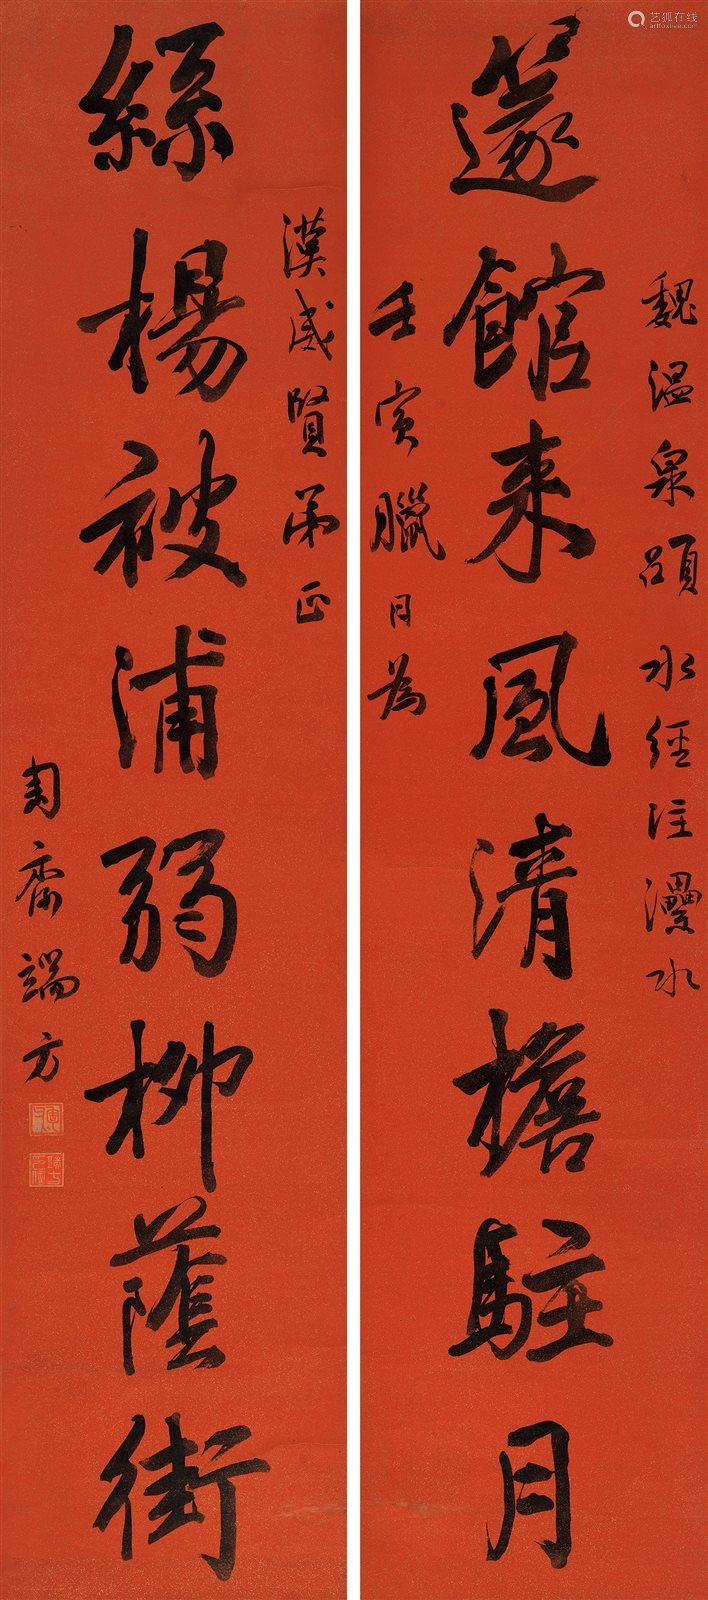 邃館來風清檐駐月
魏溫泉頌 水經注灅水
壬寅臘月為
絲楊被浦弱柳蔭街
漢威賢弟正
匋齋端方
艺狐在线
artfoxlive.com